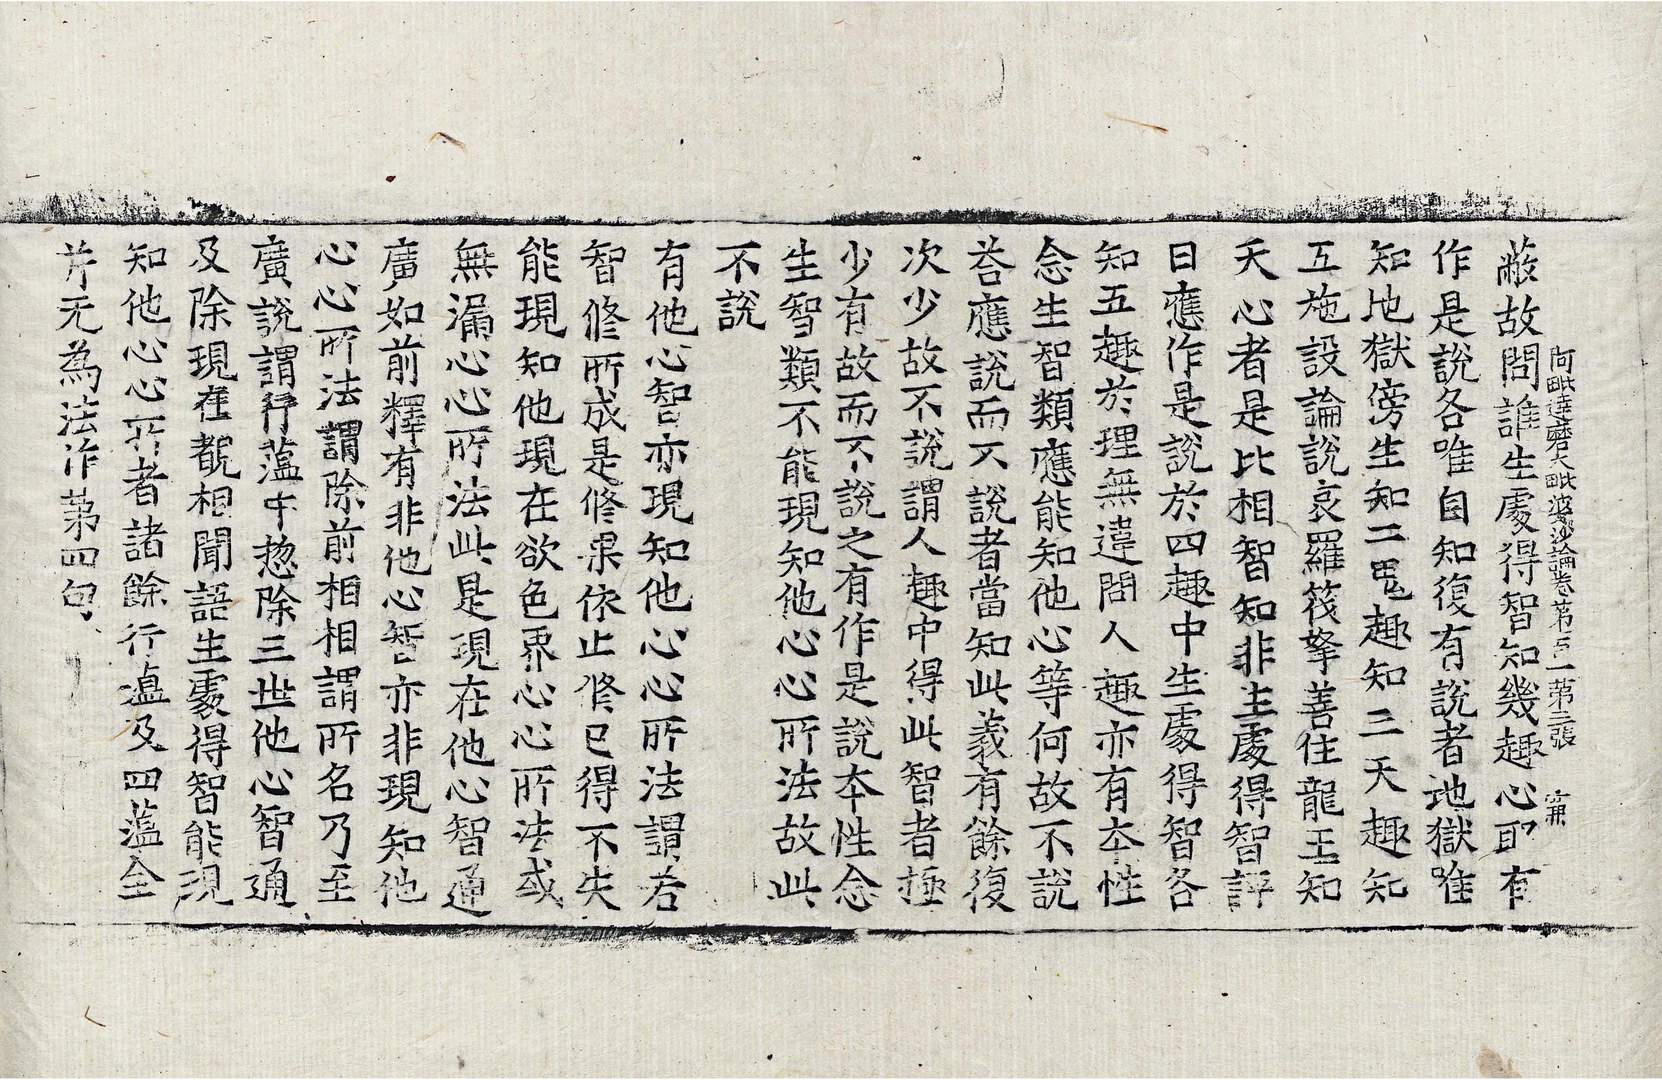 阿毗達磨大毗婆沙論卷第一百一 第三張 兼
蔽故問誰生處得智知幾趣心耶有
作是說各唯自知復有說者地獄唯
知地獄傍生知二鬼趣知三天趣知
五施設論說哀羅筏拏善住龍王知
天心者是比相智知非生處得智評
曰應作是說於四趣中生處得智各
知五趣於理無違問人趣亦有本性
念生智類應能知他心等何故不說
荅應說而不說者當知此義有餘復
次少故不說謂人趣中得此智者極
少有故而不說之有作是說本性念
生智類不能現知他心心所法故此
不說
有他心智亦現知他心心所法謂若
智修所成是修果依止修已得不失
能現知他現在欲色界心心所法或
無漏心心所法此是現在他心智通
廣如前釋有非他心智亦非現知他
心心所法謂除前相相謂所名乃至
廣說謂行蘊中惣除三世他心智通
及除現在覩相聞語生處得智能現
知他心心所者諸餘行蘊及四蘊全
并无為法作第四句